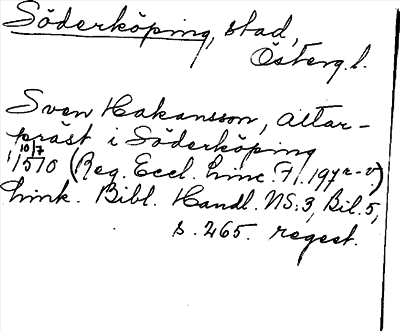 Söderköping, stad,
Österg.l.
Sven Hakansson, altar-
präst i Söderköping
10/7
1510 (Reg. Eccl. Linc. Fl. 197 r-v)
Link. Bibl. Handl. NS:3, Bil. 5,
s. 265. regest.